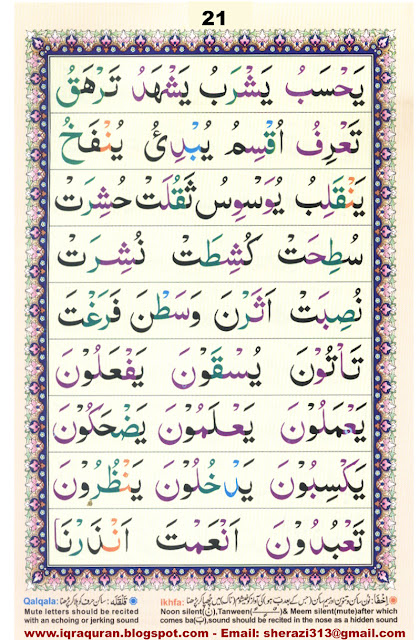 21
يَحْسَبُ يَشْرَبُ يَشْهَدُ تَرْهَقُ
تَعْرِفُ اُقْسِمُ يُبْدِئُ يُنْفَخُ
يَنْقَلِبُ يُوَسْوِسُ ثَقُلَتْ حُشِرَتْ
سُطِحَتْ كُشِطَتْ نُشِرَتْ
نُصِبَتْ اَثَرْنَ وَسَطْنَ فَرَغْتَ
تَأْتُوْنَ يُسْقَوْنَ يَفْعَلُوْنَ
يَعْمَلُوْنَ يَعْلَمُوْنَ يَضْحَكُوْنَ
يَكْسِبُوْنَ يَدْخُلُوْنَ يَنْظُرُوْنَ
تَعْبُدُوْنَ اَنْعَمْتَ اَنْذَرْنَا
Qalqala:
Mute letters should be recited
with an echoing or jerking sound
Ikhfa:
Noon silent(نْ),Tanween & Meem silent(mute)after which
comes ba(ب),sound should be recited in the nose as a hidden sound
www.iqraquran.blogspot.com - Email: sherazi313@gmail.com